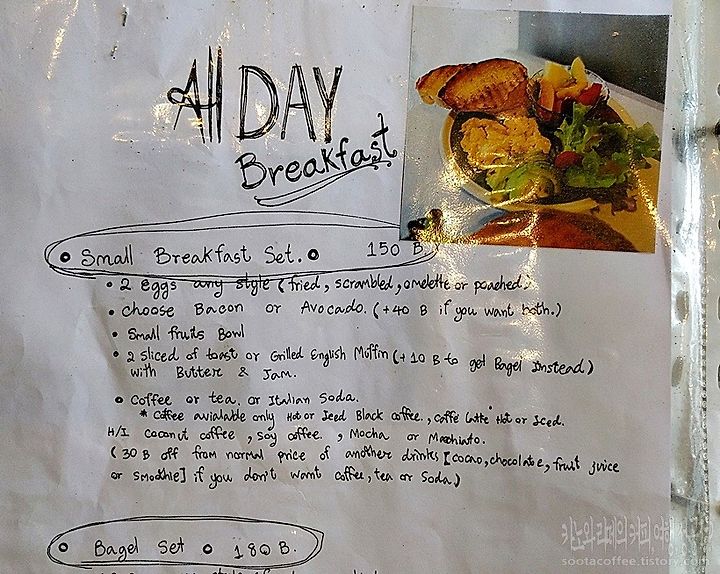 All DAY
Breakfast
Small Breakfast Set. 150 B
• 2 eggs any style (fried, scrambled, omelette or poached)
• choose Bacon or Avocado. (+40 B if you want both.)
• Small fruits Bowl
• 2 sliced of toast or Grilled English Muffin (+10 B to get Bagel Instead)
with Butter & Jam.
• Coffee or tea. or Italian Soda.
* Coffee avialable only Hot or Iced Black coffee., Caffé Latte Hot or Iced.
H/I Coconut coffee, Soy coffee., Mocha or Machiato.
(30 B off from normal price of another drinks [cocao, chocolate, fruit juice
or Smoothie] if you don't want coffee, tea or Soda.)
Bagel Set 180 B.
sootacoffee.tistory.com